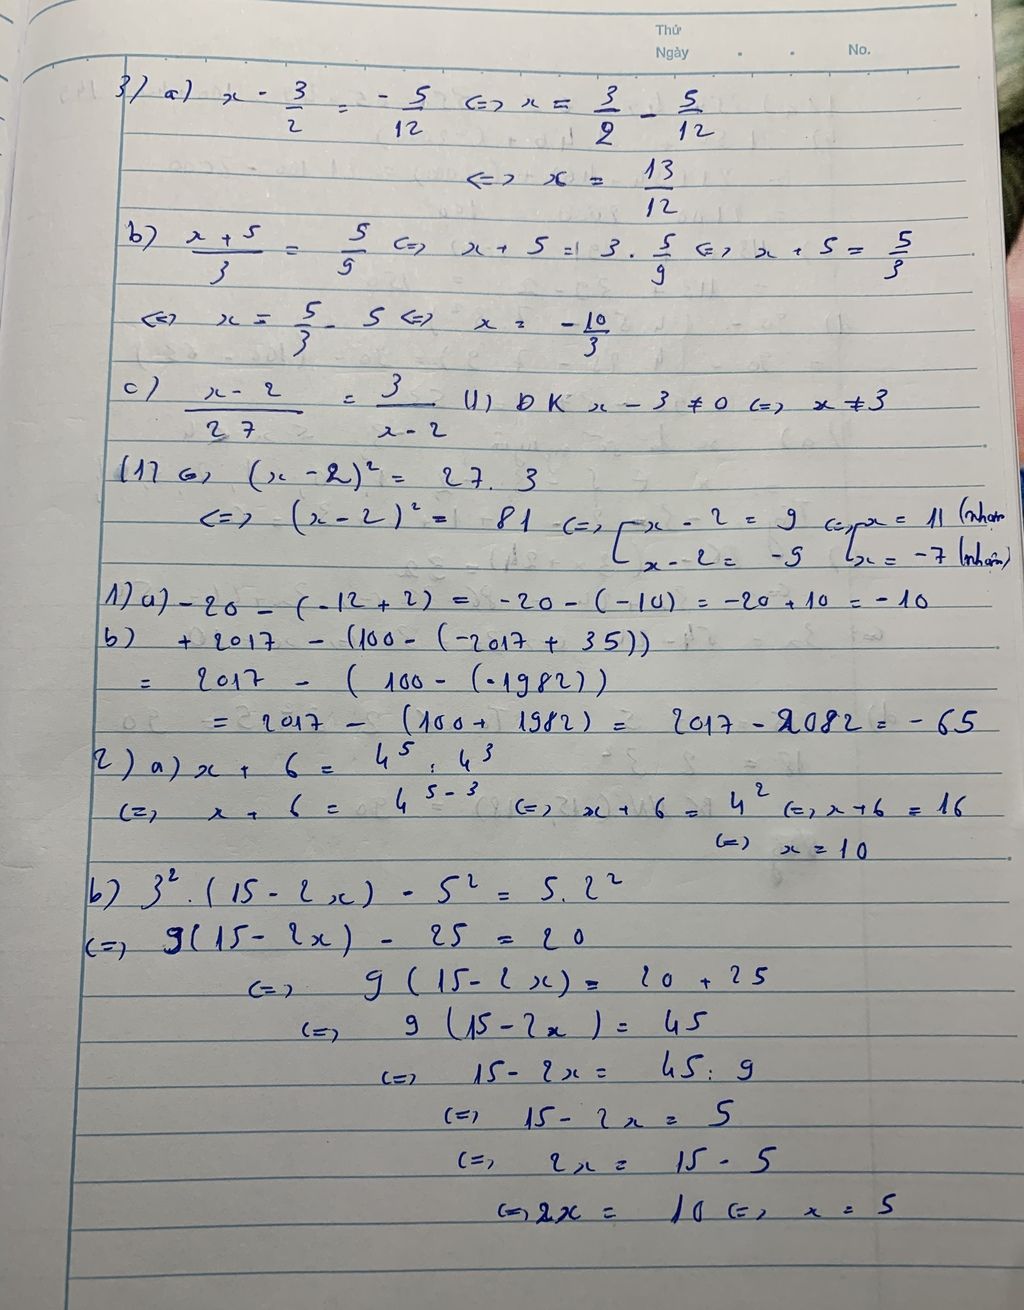 Thứ
Ngày . . No.
3) a) x - 3/2 = - 5/12 <=> x = 3/2 - 5/12
<=> x = 13/12
b) (x + 5)/3 = 5/9 <=> x + 5 = 3 . 5/9 <=> x + 5 = 5/3
<=> x = 5/3 - 5 <=> x = - 10/3
c) (x - 2)/27 = 3/(x - 2) (1) DK x - 3 ≠ 0 <=> x ≠ 3
(1) <=> (x - 2)² = 27 . 3
<=> (x - 2)² = 81 <=> [ x - 2 = 9 <=> [ x = 11 (nhận
x - 2 = - 9 x = - 7 (nhận)
1) a) - 20 - (-12 + 2) = -20 - (-10) = -20 + 10 = -10
b) + 2017 - (100 - (-2017 + 35))
= 2017 - (100 - (-1982))
= 2017 - (100 + 1982) = 2017 - 2082 = - 65
2) a) x + 6 = 4⁵ : 4³
<=> x + 6 = 4⁵⁻³ <=> x + 6 = 4² <=> x + 6 = 16
<=> x = 10
b) 3² . (15 - 2x) - 5² = 5 . 2²
<=> 9(15 - 2x) - 25 = 20
<=> 9 (15 - 2x) = 20 + 25
<=> 9 (15 - 2x) = 45
<=> 15 - 2x = 45 : 9
<=> 15 - 2x = 5
<=> 2x = 15 - 5
<=> 2x = 10 <=> x = 5